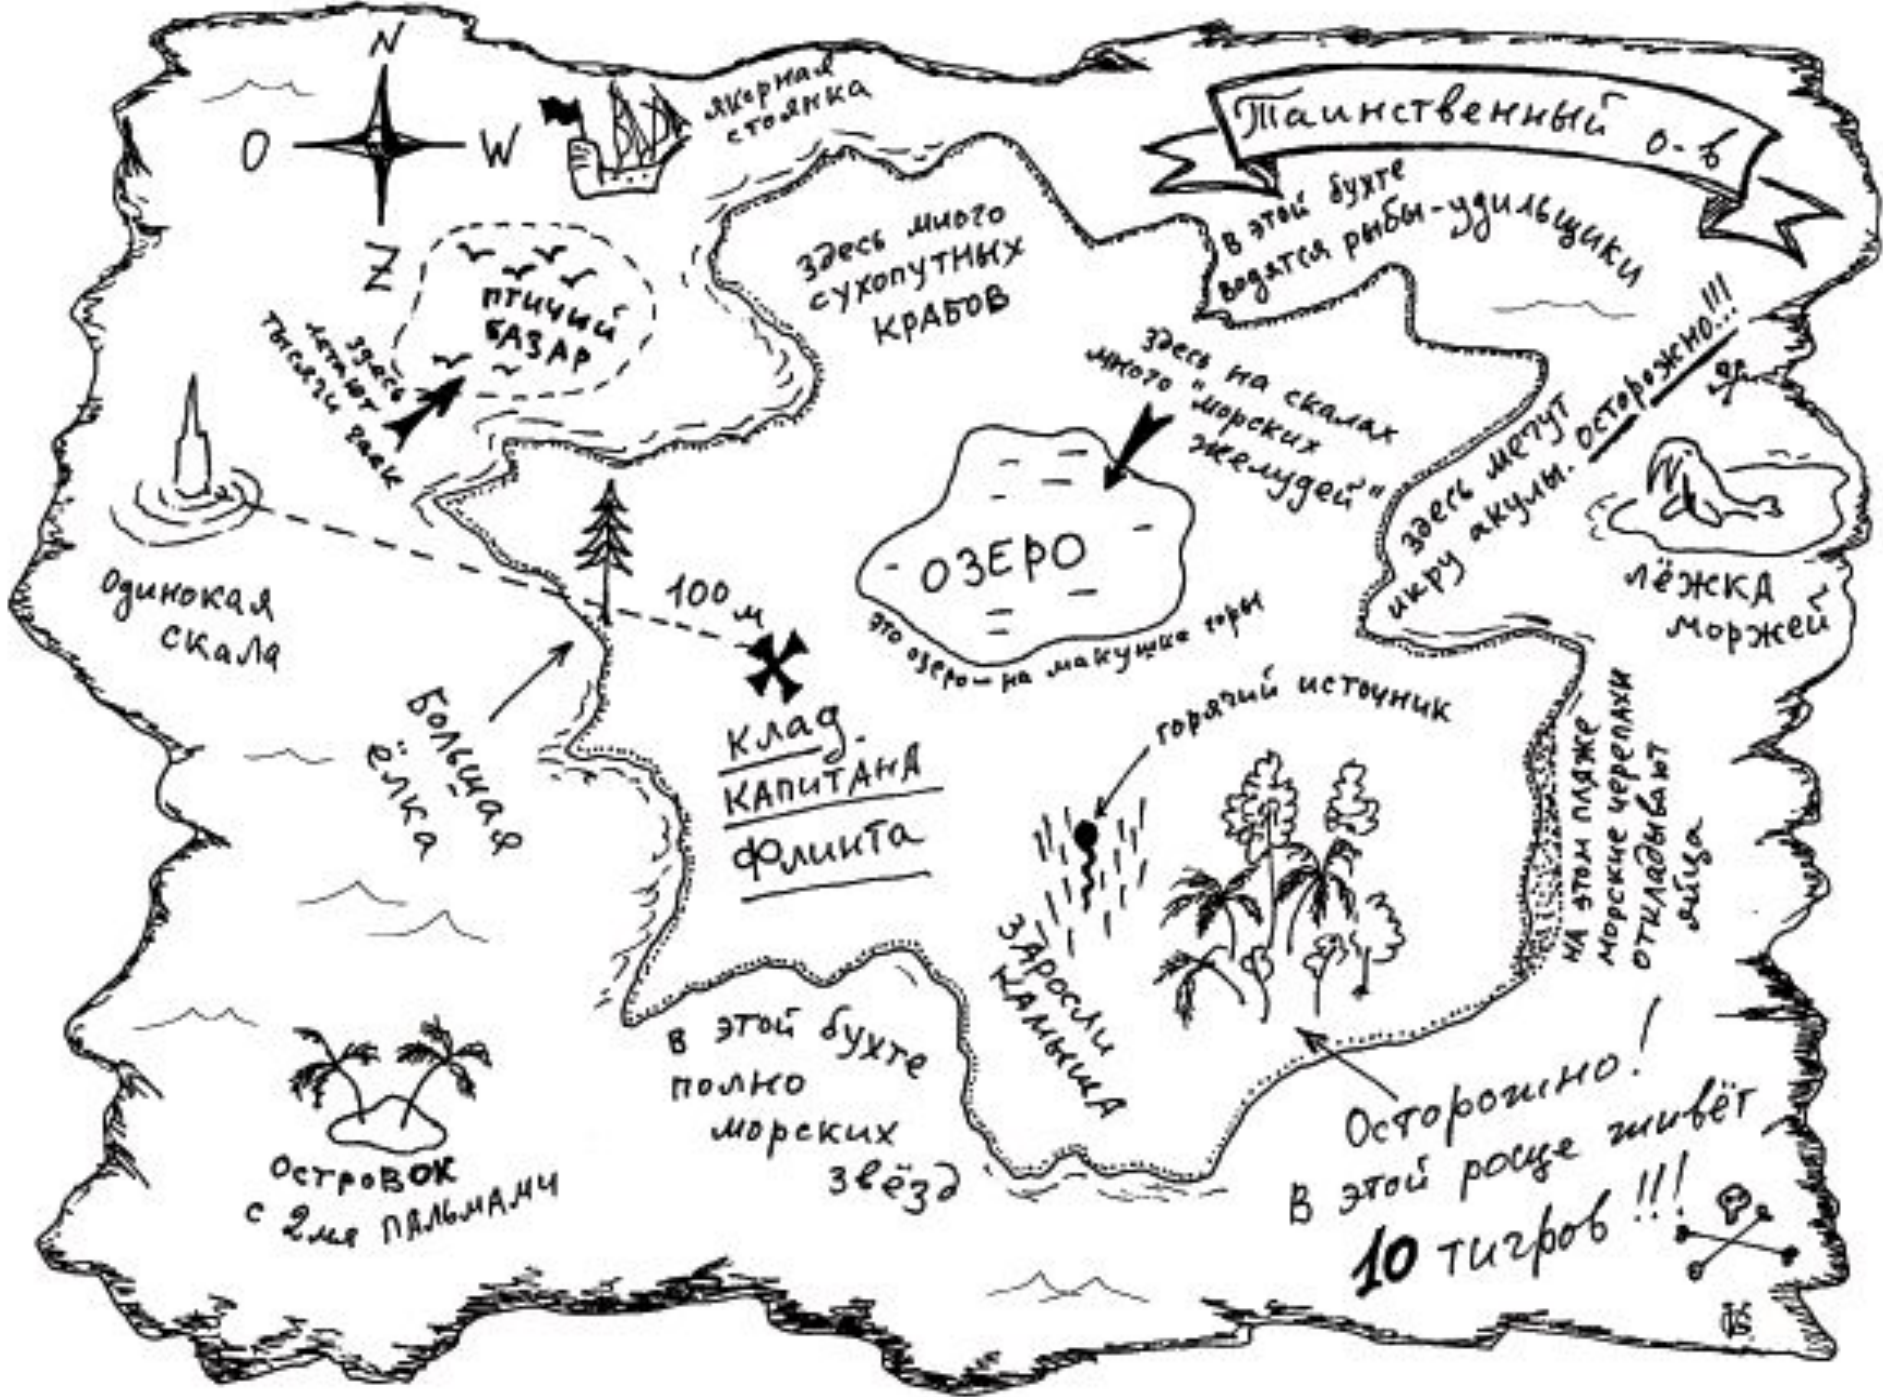 N
O
W
Z
якорная
стоянка
Таинственный о-в
В этой бухте
водятся рыбы-удильщики
здесь много
сухопутных
крабов
птичий
базар
здесь
летают
тысячи чаек
здесь на скалах
много "морских
желудей"
здесь мечут
икру акулы. осторожно!!!
лёжка
моржей
одинокая
скала
100 м
ОЗЕРО
это озеро - на макушке горы
Большая
ёлка
клад
капитана
Флинта
горячий источник
на этом пляже
морские черепахи
откладывают
яйца
заросли
камыша
островок
с 2мя пальмами
в этой бухте
полно
морских
звёзд
Осторожно!
В этой роще живёт
10 тигров!!!